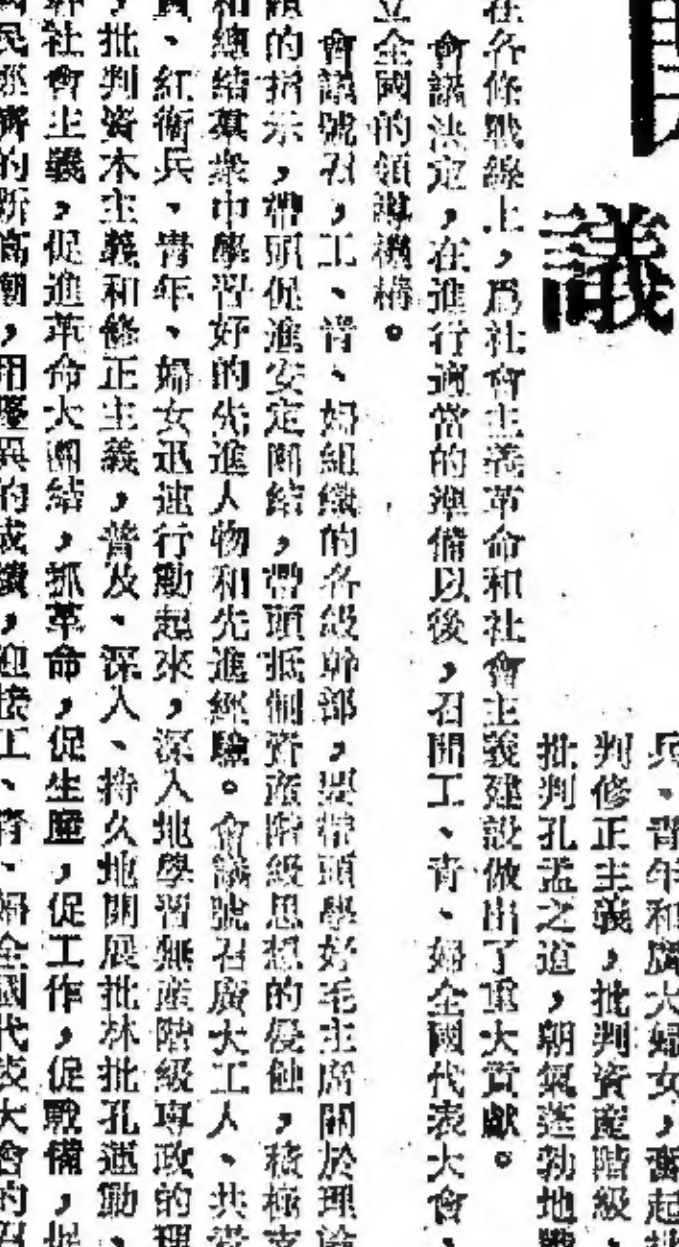 議
兵、青年和廣大婦女，奮起批
判修正主義，批判資產階級，
批判孔孟之道，朝氣蓬勃地戰
在各條戰線上，爲社會主義革命和社會主義建設做出了重大貢獻。
會議決定，在進行適當的準備以後，召開工、青、婦全國代表大會，
立全國的領導機構。
會議號召，工、青、婦組織的各級幹部，要帶頭學好毛主席關於理論
題的指示，帶頭促進安定團結，帶頭抵制資產階級思想的侵蝕，積極支
和總結羣衆中學習好的先進人物和先進經驗。會議號召廣大工人、共青
員、紅衛兵、青年、婦女迅速行動起來，深入地學習無產階級專政的理
，批判資本主義和修正主義，普及、深入、持久地開展批林批孔運動，
社會主義，促進革命大團結，抓革命，促生產，促工作，促戰備，促
國民經濟的新高潮，用優異的成績，迎接工、青、婦全國代表大會的召